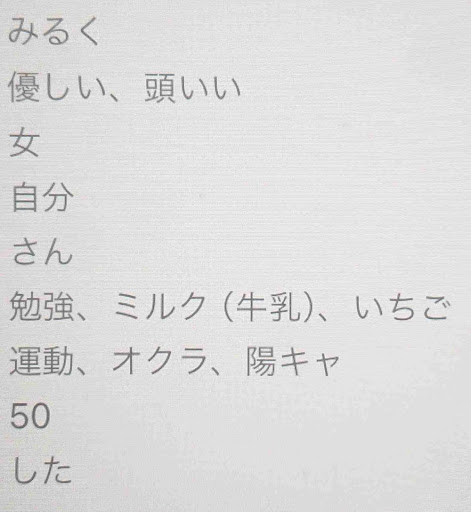 みるく
優しい、頭いい
女
自分
さん
勉強、ミルク（牛乳）、いちご
運動、オクラ、陽キャ
50
した